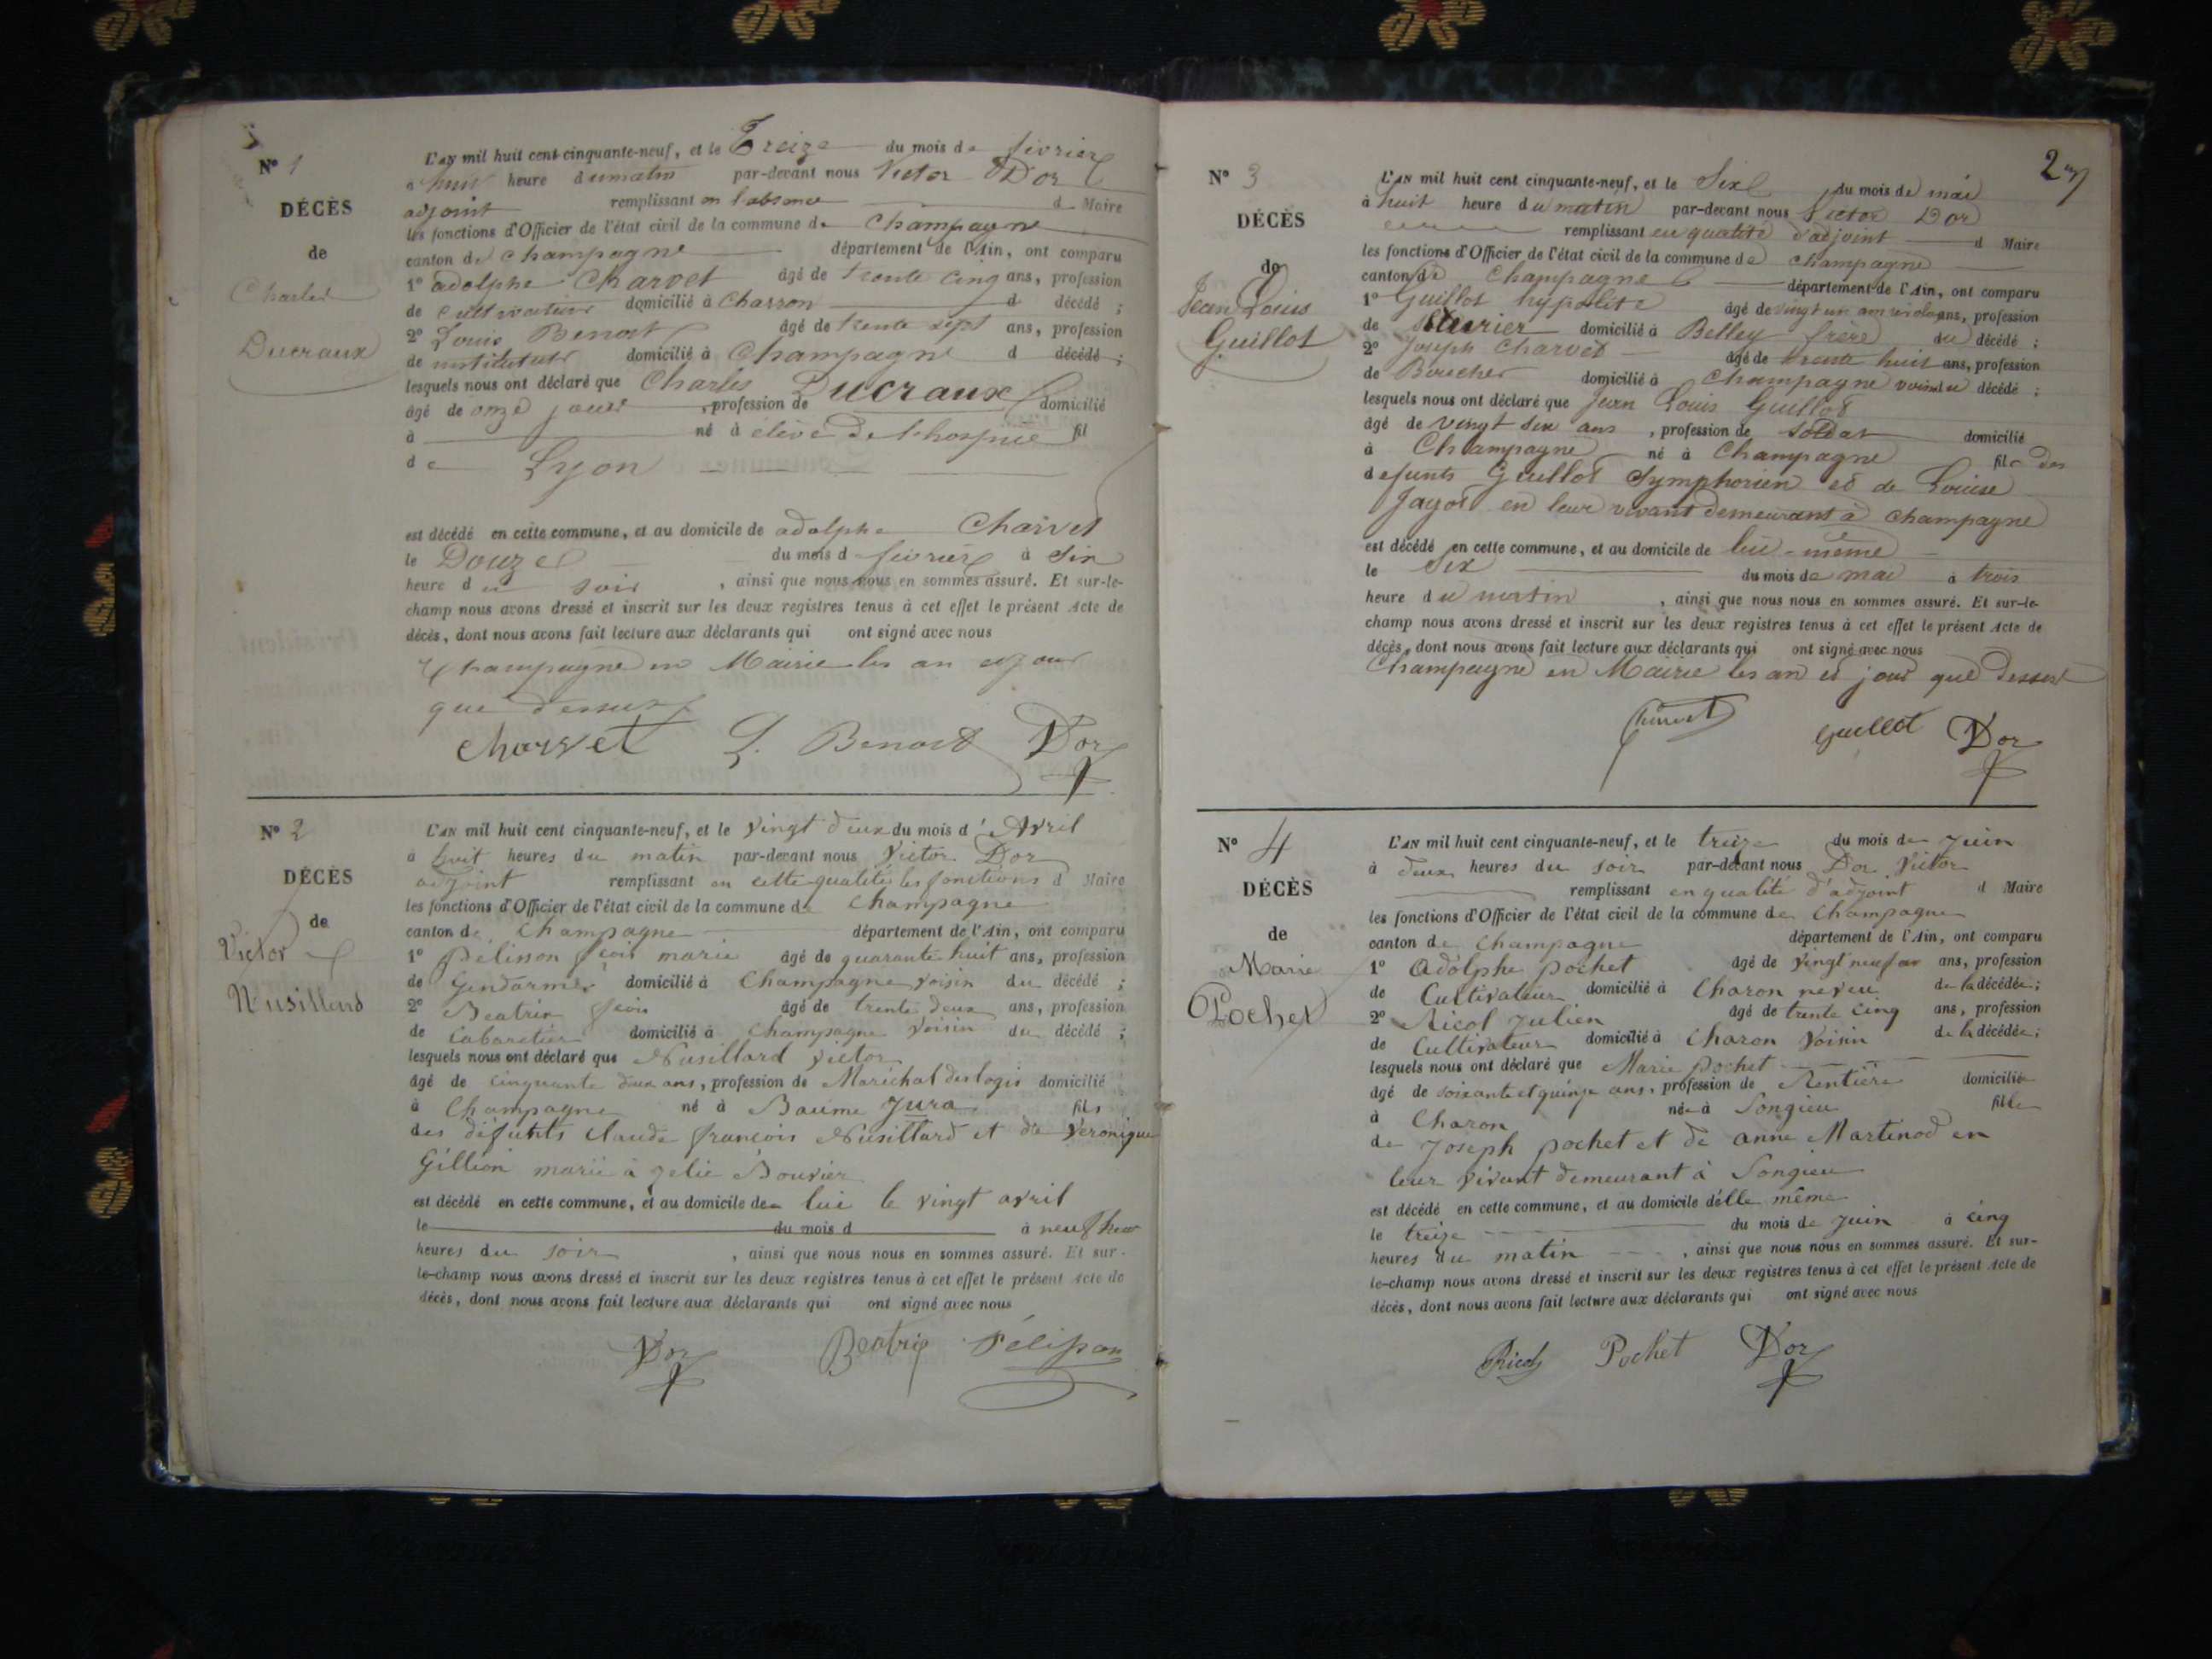 N° 1
DÉCÈS
de
Charles
Ducraux
L'AN mil huit cent cinquante-neuf, et le Treize du mois de février
à huit heure du matin par-devant nous Victor Dor
adjoint remplissant en l'absence d Maire
les fonctions d'Officier de l'état civil de la commune de Champagne
canton de champagne département de l'Ain, ont comparu
1° adolphe Charvet âgé de trente cinq ans, profession
de cultivateur domicilié à Charron d décédé ;
2° Louis Benoit âgé de trente sept ans, profession
de instituteur domicilié à Champagne d décédé ;
lesquels nous ont déclaré que Charles Ducraux
âgé de onze jours , profession de domicilié
à né à élève de l'hospice fil
de Lyon
est décédé en cette commune, et au domicile de adolphe Charvet
le Douze du mois d février à six
heure du soir , ainsi que nous nous en sommes assuré. Et sur-le-
champ nous avons dressé et inscrit sur les deux registres tenus à cet effet le présent Acte de
décès, dont nous avons fait lecture aux déclarants qui ont signé avec nous
Champagne en Mairie les an et jour
que dessus
Charvet L. Benoit Dor
N° 2
DÉCÈS
de
Victor
Nusillard
L'AN mil huit cent cinquante-neuf, et le vingt deux du mois d'Avril
à huit heures du matin par-devant nous Victor Dor
adjoint remplissant en cette qualité les fonctions d Maire
les fonctions d'Officier de l'état civil de la commune de Champagne
canton de Champagne département de l'Ain, ont comparu
1° Pélisson fcois marie âgé de quarante huit ans, profession
de Gendarme domicilié à Champagne voisin du décédé ;
2° Beatrix fcois âgé de trente deux ans, profession
de Cabaretier domicilié à Champagne voisin du décédé ;
lesquels nous ont déclaré que Nusillard Victor
âgé de cinquante deux ans, profession de Maréchal des logis domicilié
à Champagne né à Baume Jura fils
des défunts Claude françois Nusillard et de Veronique
Gillion marié à Zelie Bouvier
est décédé en cette commune, et au domicile de lui le vingt avril
le du mois d à neuf heur
heures du soir , ainsi que nous nous en sommes assuré. Et sur-
le-champ nous avons dressé et inscrit sur les deux registres tenus à cet effet le présent Acte de
décès, dont nous avons fait lecture aux déclarants qui ont signé avec nous
Dor Beatrix Pélisson
2
N° 3
DÉCÈS
de
Jean Louis
Guillot
L'AN mil huit cent cinquante-neuf, et le Six du mois de mai
à huit heure du matin par-devant nous Victor Dor
remplissant en qualité d'adjoint d Maire
les fonctions d'Officier de l'état civil de la commune de champagne
canton de Champagne département de l'Ain, ont comparu
1° Guillot hypolite âgé de vingt un ans, profession
de domicilié à Belley frère du décédé ;
2° Joseph Charvet âgé de trente huit ans, profession
de Boucher domicilié à Champagne voisin du décédé ;
lesquels nous ont déclaré que Jean Louis Guillot
âgé de vingt six ans , profession de soldat domicilié
à Champagne né à Champagne fils des
defunts Guillot Symphorien et de Louise
Jayot en leur vivant demeurant à champagne
est décédé en cette commune, et au domicile de lui-même
le Six du mois de mai à trois
heure du matin , ainsi que nous nous en sommes assuré. Et sur-le-
champ nous avons dressé et inscrit sur les deux registres tenus à cet effet le présent Acte de
décès, dont nous avons fait lecture aux déclarants qui ont signé avec nous
Champagne en Mairie les an et jour que dessus
Charvet Guillot Dor
N° 4
DÉCÈS
de
Marie
Pochet
L'AN mil huit cent cinquante-neuf, et le treize du mois de Juin
à deux heures du soir par-devant nous Dor Victor
remplissant en qualité d'adjoint d Maire
les fonctions d'Officier de l'état civil de la commune de Champagne
canton de Champagne département de l'Ain, ont comparu
1° Adolphe pochet âgé de vingt neuf ans, profession
de Cultivateur domicilié à Charon neveu de la décédée;
2° Ricol Julien âgé de trente cinq ans, profession
de Cultivateur domicilié à Charon Voisin de la décédée;
lesquels nous ont déclaré que Marie pochet
âgé de soixante et quinze ans, profession de Rentière domicilié
à Charon née à Songieu fille
de Joseph pochet et de anne Martinod en
leur vivant demeurant à Songieu
est décédé en cette commune, et au domicile d'elle même
le treize du mois de Juin à cinq
heures du matin , ainsi que nous nous en sommes assuré. Et sur-
le-champ nous avons dressé et inscrit sur les deux registres tenus à cet effet le présent Acte de
décès, dont nous avons fait lecture aux déclarants qui ont signé avec nous
Ricol Pochet Dor